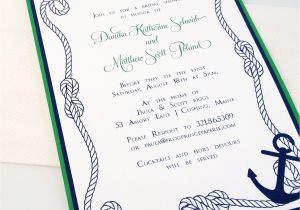 Join us for a bridal shower
in honor of
Danika Katherine Schmidt
and
Matthew Scott Poland
Before they tie the knot
Saturday, August 18th
at the home of
Paula & Scott Riggs
Anchor Lane | Cushing, Maine
Please RSVP to Paula at 321.865.5309
or paula@frogprincepaperie.com
Cocktails and hors d'oeuvres
will be served